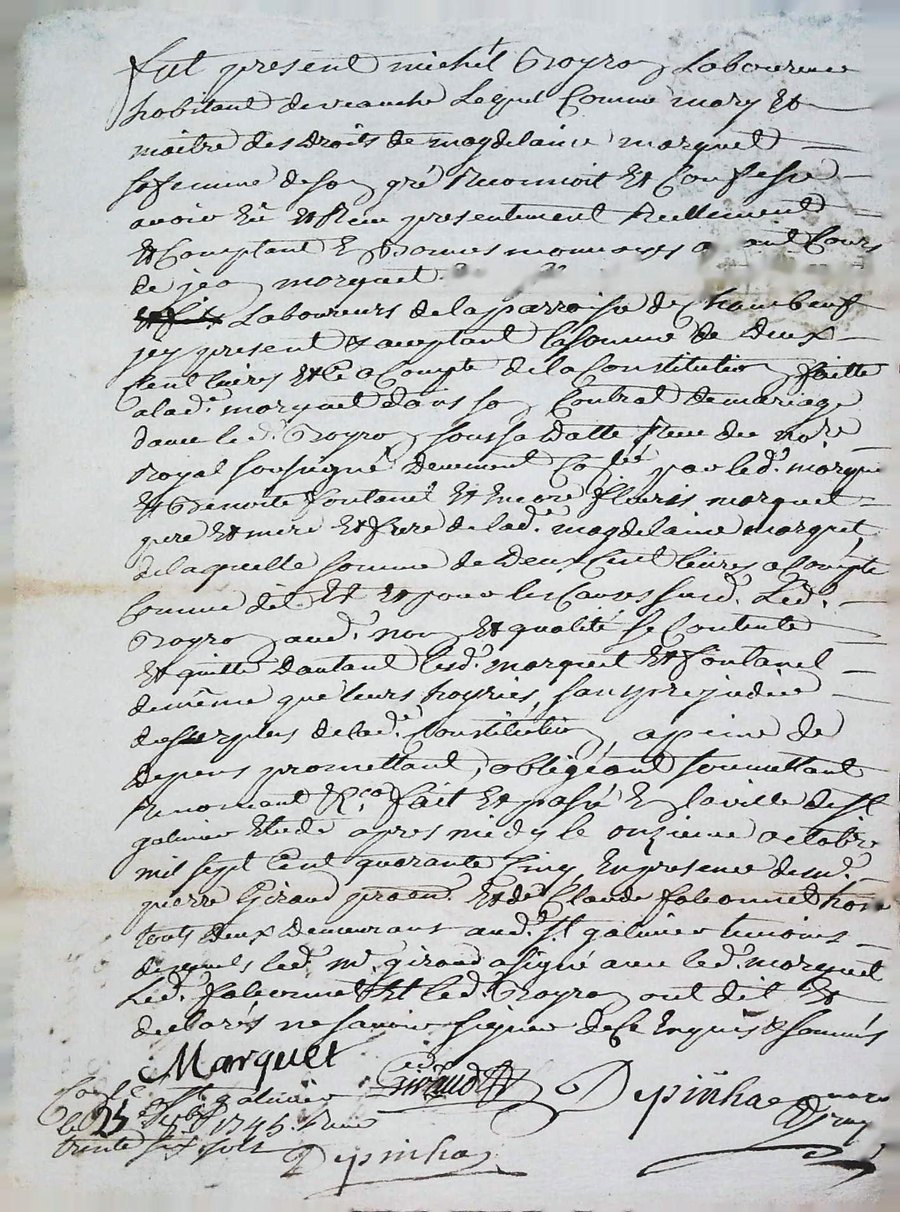 fut present michel Royron Laboureur
habitant de veauche Lequel Comme mary Et
maitre des droits de magdelaine marquet
sa femme de son gré Reconnoit Et Confesse
avoir Eü Et Reçu presentement Reellement
Et Comptant En bonnes monnoyes ayant Cours
de jean marquet
Laboureurs de la parroisse de Chambeuf
icy present & aceptant la somme de deux
Cent livres Et Ce a Compte de la Constitution faitte
a lad.e marquet dans son Contrat de mariage
avec led. Royron sous sa datte Reçu du no.re
Royal soussigné deuement Co.lé par led. marquet
Et Benoite fontanel Et Encore fleuris marquet
pere Et mere Et frere de lad.e magdelaine marquet
de laquelle somme de deux Cent livres a Compte
Comme dit Et Et pour les Causes susd. Led.
Royron aud. nom Et qualité se Contente
Et quitte d'autant lesd. marquet Et fontanel
de même que leurs hoyries, sans prejudice
du surplus de lad.e Constitution a peine de
depens promettant, obligeant soumettant
Renonceant &ca fait Et passé En la ville de St
galmier Etude apres midy le onzieme octobre
mil sept Cent quarante Cinq En presence de m.
pierre Giraud Et de Claude falconnet
touts deux demeurans aud. St galmier temoins
desquels led. m.e giraud a signé avec led. marquet
Led. falconnet Et led. Royron ont dit Et
declarés ne savoir signer de Ce Enquis & sommés
Marquet Giraud Depinhac
St galmier
le 25 8bre 1745. Reçu
trente six sols Depinhac